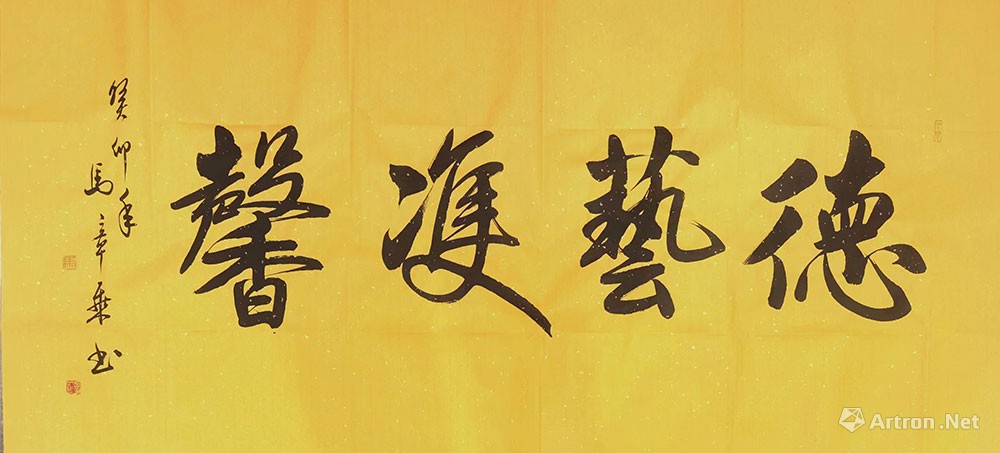 德藝雙馨
癸卯年
馬章乘书
Artron.Net